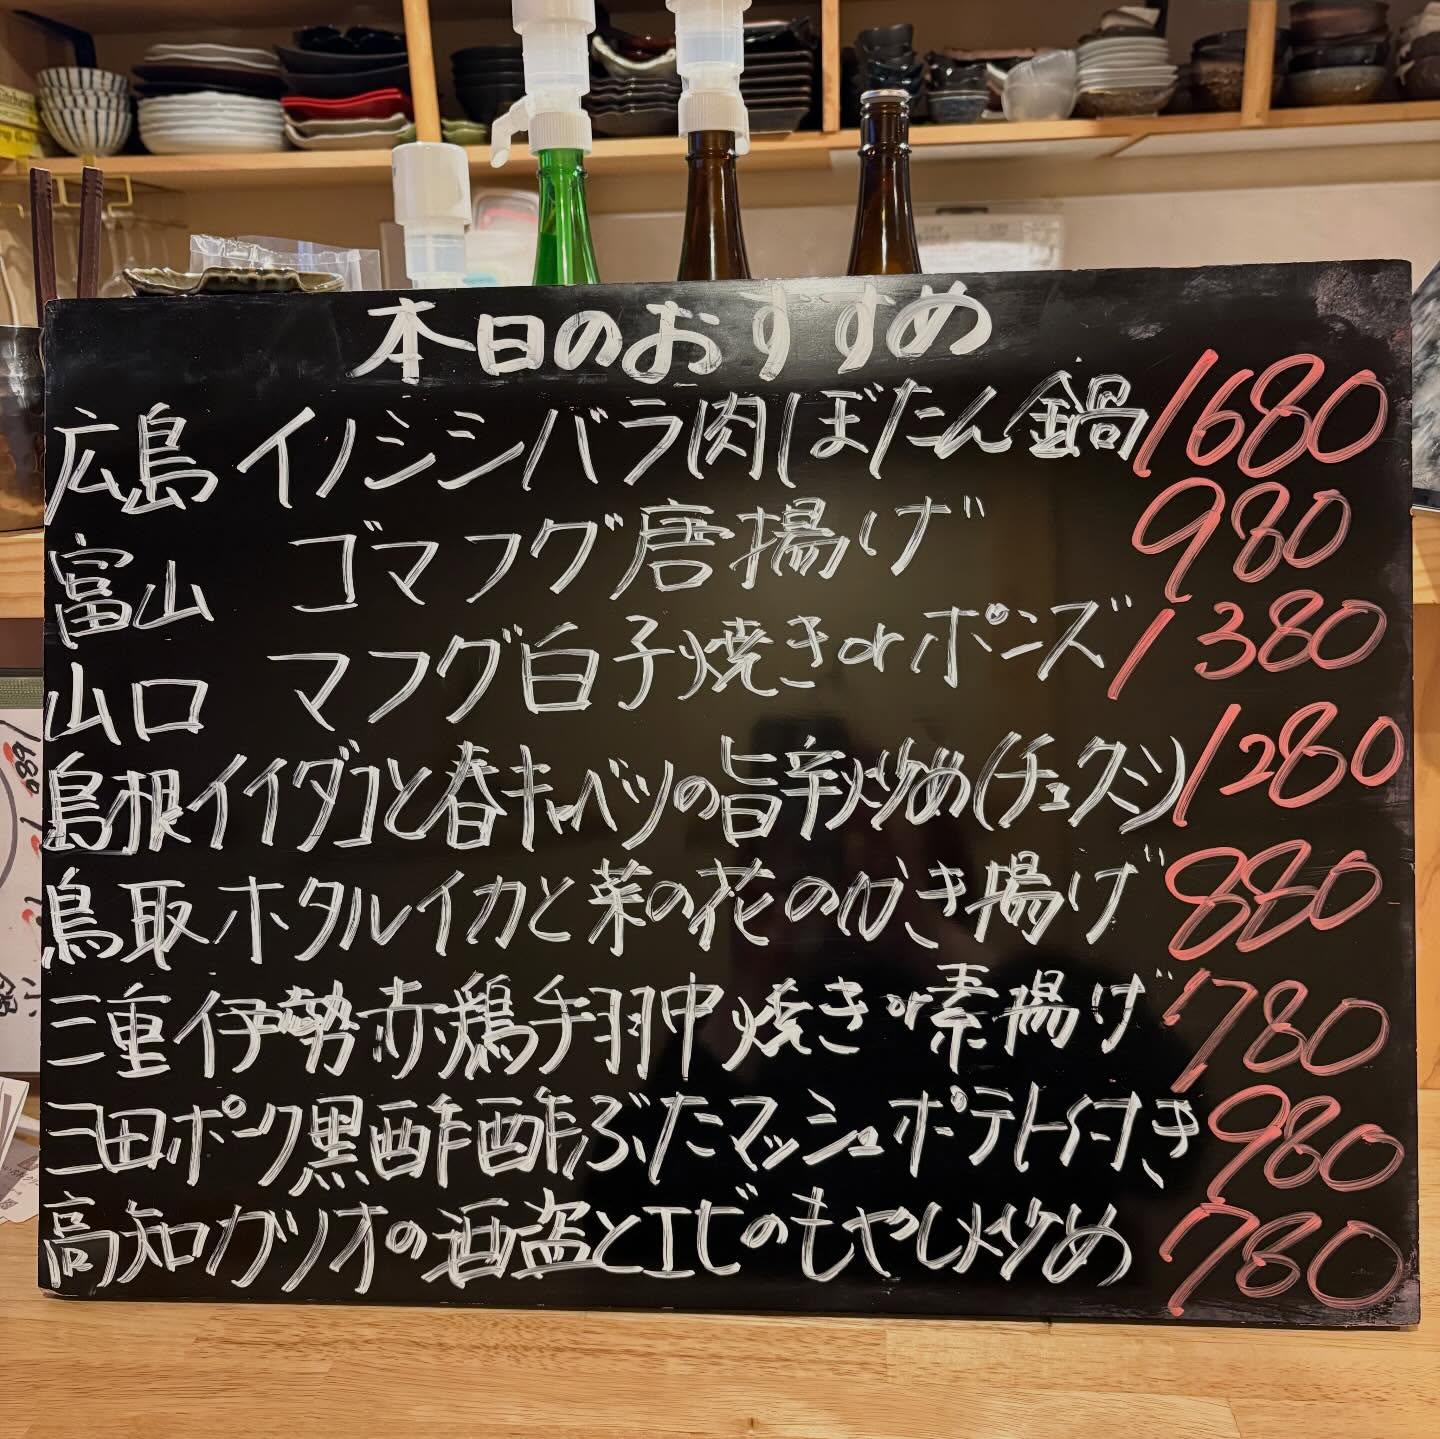 本日のおすすめ
広島 イノシシバラ肉ぼたん鍋 1680
富山 ゴマフグ唐揚げ 980
山口 マフグ白子焼きorポンズ 1380
島根イイダコと春キャベツの旨辛炒め(チュクミ) 1280
鳥取ホタルイカと菜の花のかき揚げ 880
三重伊勢赤鶏手羽中焼きor素揚げ 780
三田ポーク黒酢酢ぶたマッシュポテト付き 980
高知カツオの酒盗とエビのもやし炒め 780